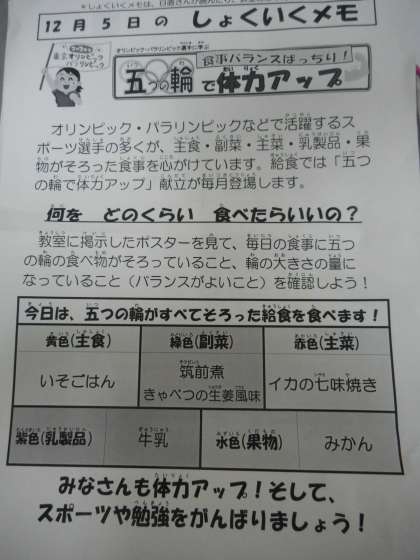 ＊しょくいくメモは、
１２月５日の しょくいくメモ
東京オリンピック
パラリンピック
オリンピック・パラリンピック選手に学ぶ
食事バランスばっちり！
五つの輪で体力アップ
オリンピック・パラリンピックなどで活躍するス
ポーツ選手の多くが、主食・副菜・主菜・乳製品・果
物がそろった食事を心がけています。給食では「五つ
の輪で体力アップ」献立が毎月登場します。
何を どのくらい 食べたらいいの？
教室に掲示したポスターを見て、毎日の食事に五つ
の輪の食べ物がそろっていること、輪の大きさの量に
なっていること（バランスがよいこと）を確認しよう！
今日は、五つの輪がすべてそろった給食を食べます！
黄色(主食) 緑色(副菜) 赤色(主菜)
いそごはん 筑前煮 イカの七味焼き
きゃべつの生姜風味
紫色(乳製品) 牛乳 水色(果物) みかん
みなさんも体力アップ！そして、
スポーツや勉強をがんばりましょう！